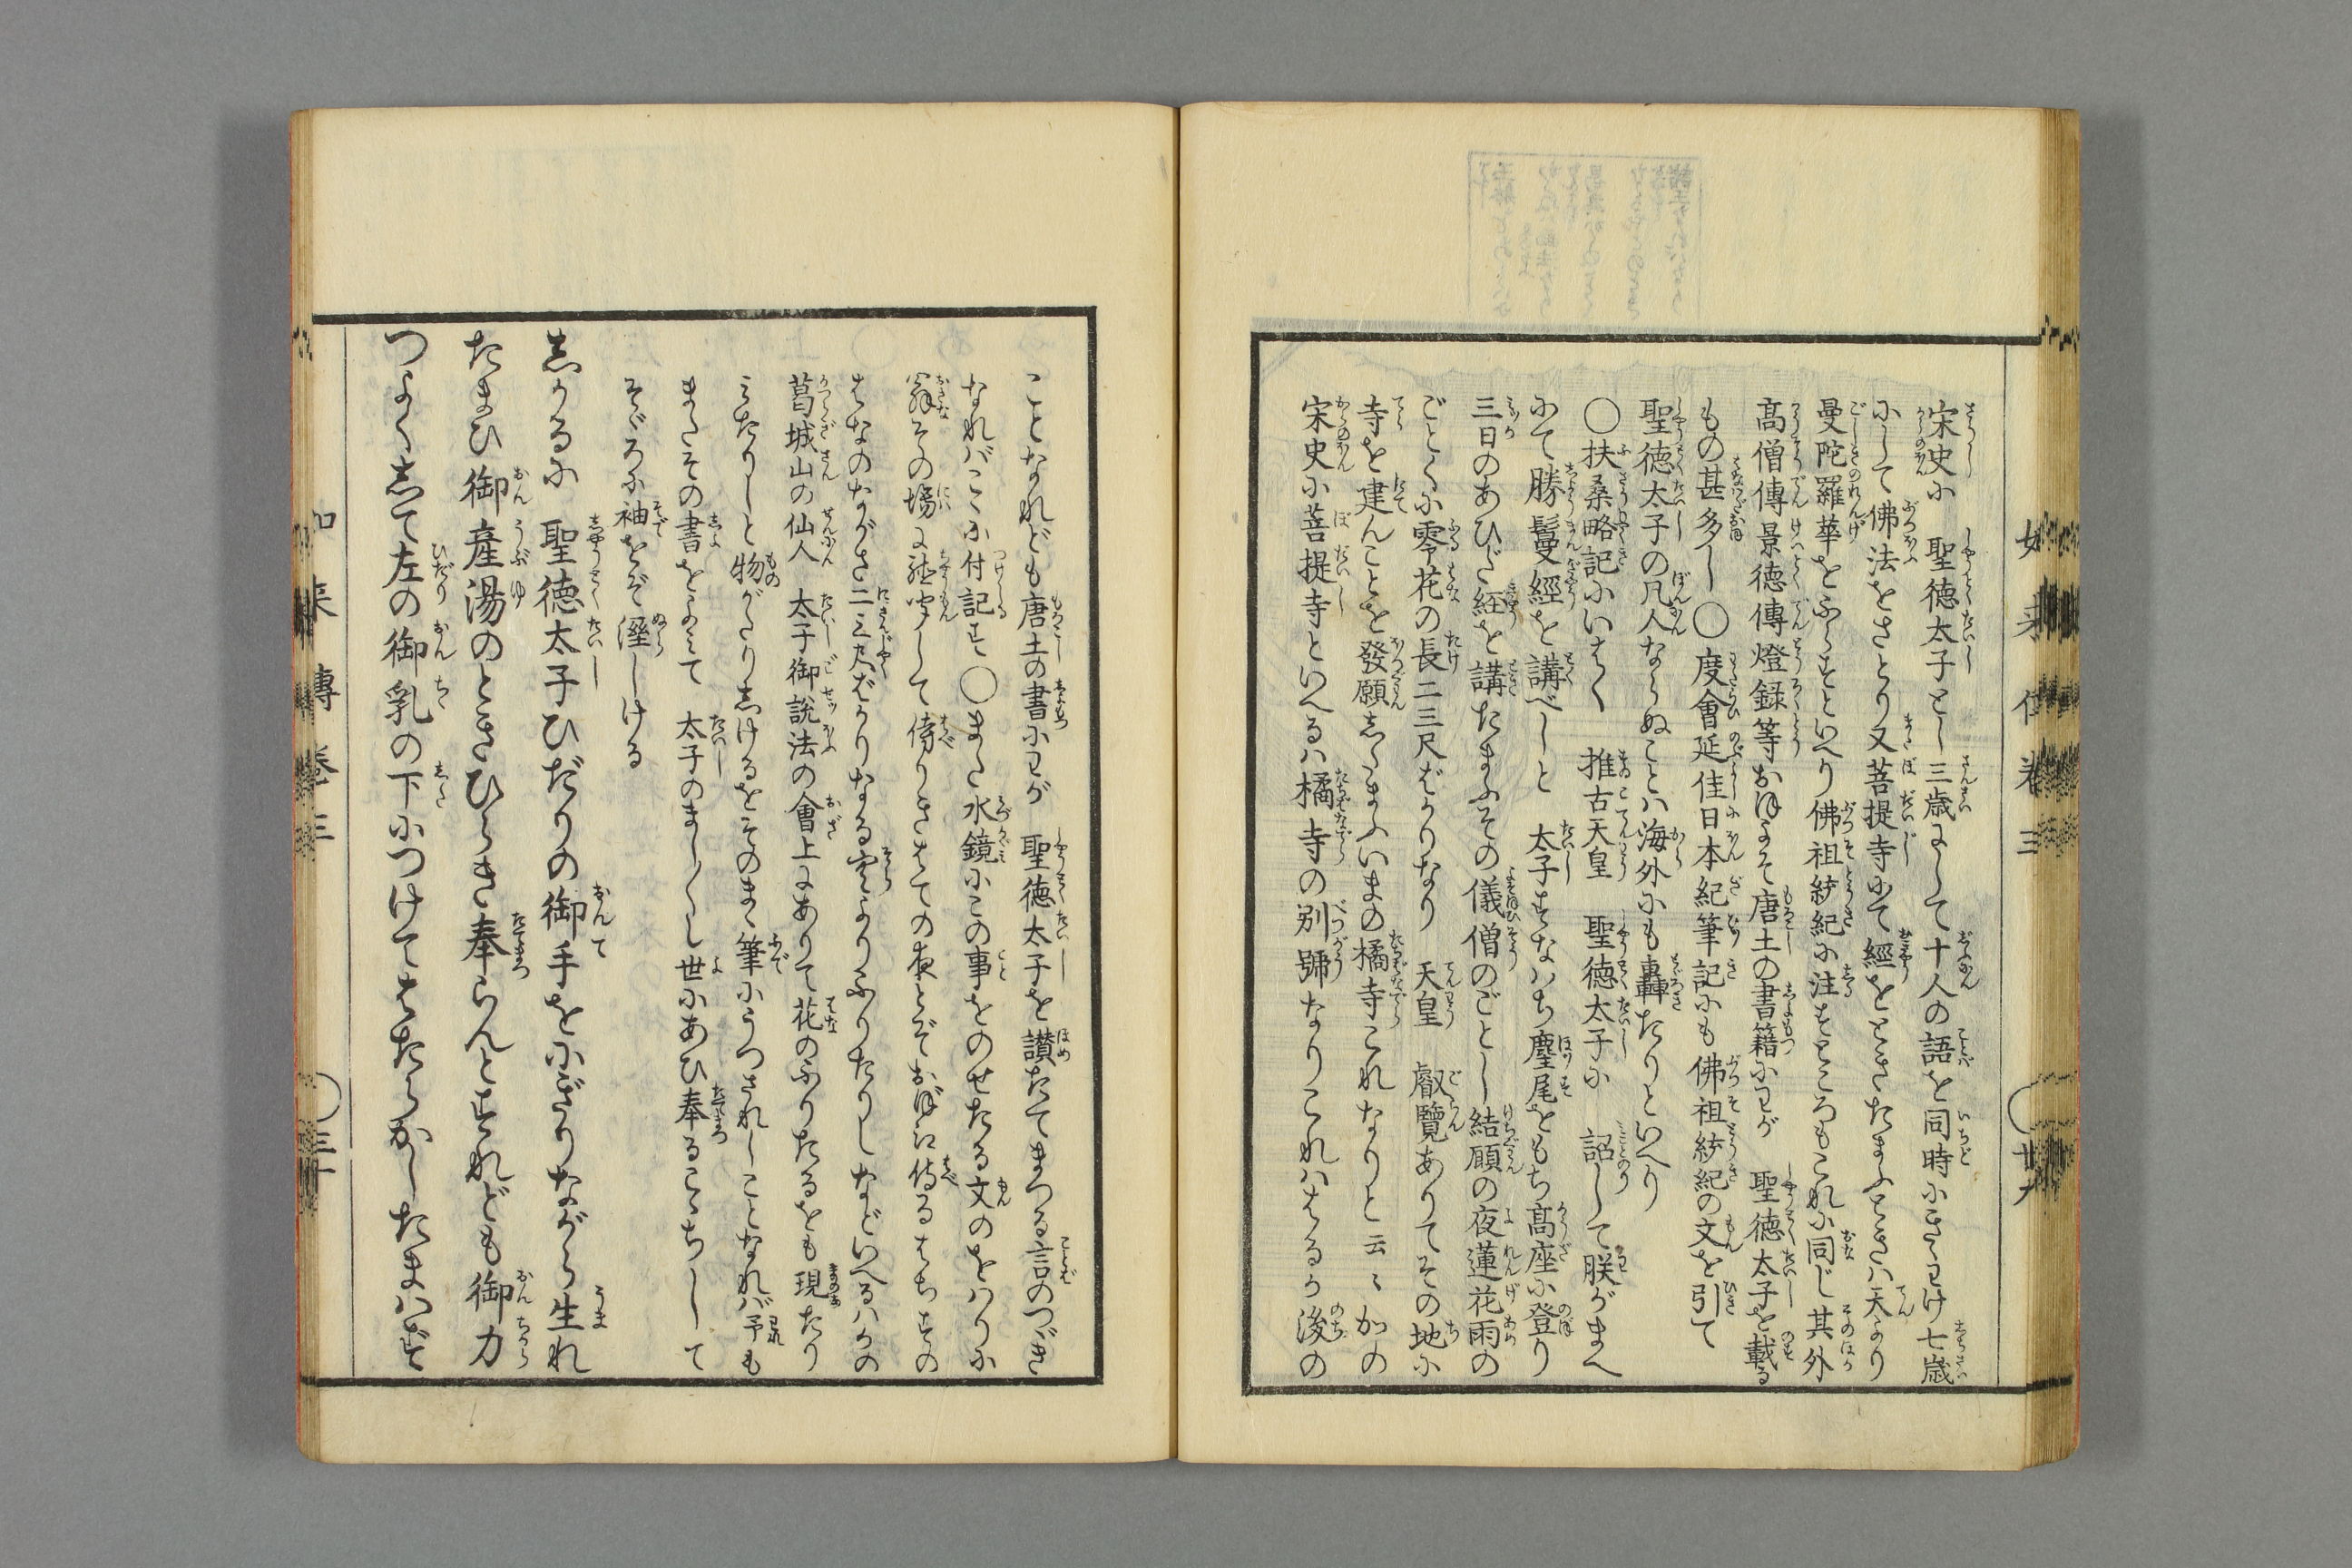 宋史に 聖徳太子とし三歳にして十人の語を同時にきゝわけ七歳
にして佛法をさとり又菩提寺にて經をときたまふときハ天より
曼陀羅華をふらすといへり佛祖統紀に注すところもこれに同じ其外
高僧傳景徳傳燈録等おほよそ唐土の書籍にわが 聖徳太子を載る
もの甚多し○度會延佳日本紀筆記にも佛祖統紀の文を引て
聖徳太子の凡人ならぬことハ海外にも轟たりといへり
○扶桑略記にいはく 推古天皇 聖徳太子に 詔して朕がまへ
にて勝鬘經を講べしと 太子すなハち麈尾をもち高座に登り
三日のあひだ経を講たまふその儀僧のごとし結願の夜蓮花雨の
ごとくに零花の長二三尺ばかりなり 天皇 叡覽ありてその地に
寺を建んことを發願したまふいまの橘寺これなりと云々かの
宋史に菩提寺といへるハ橘寺の別號なりこれハはるか後の
ことなれども唐土の書にわが 聖徳太子を讃たてまつる言のつゞき
なれバこゝに付記す○また水鏡にこの事をのせたる文のをハりに
翁その場に聴聞して侍りきさての夜とぞおぼえ侍るはちすの
はなのながさ二三尺ばかりなる空よりふりたりしなどいへるハかの
葛城山の仙人 太子御説法の會上にありて花のふりたるをも現たり
みたりしと物がたりしけるをそのまゝ筆にうつされしことなれバ予も
またその書をよみて 太子のましましゝ世にあひ奉るこゝちして
そゞろに袖をぞ溼しける
しかるに 聖徳太子ひだりの御手をにぎりながら生れ
たまひ御産湯のときひらき奉らんとすれども御力
つよくして左の御乳の下につけてはたらかしたまハず
如来傳巻三 ○三十